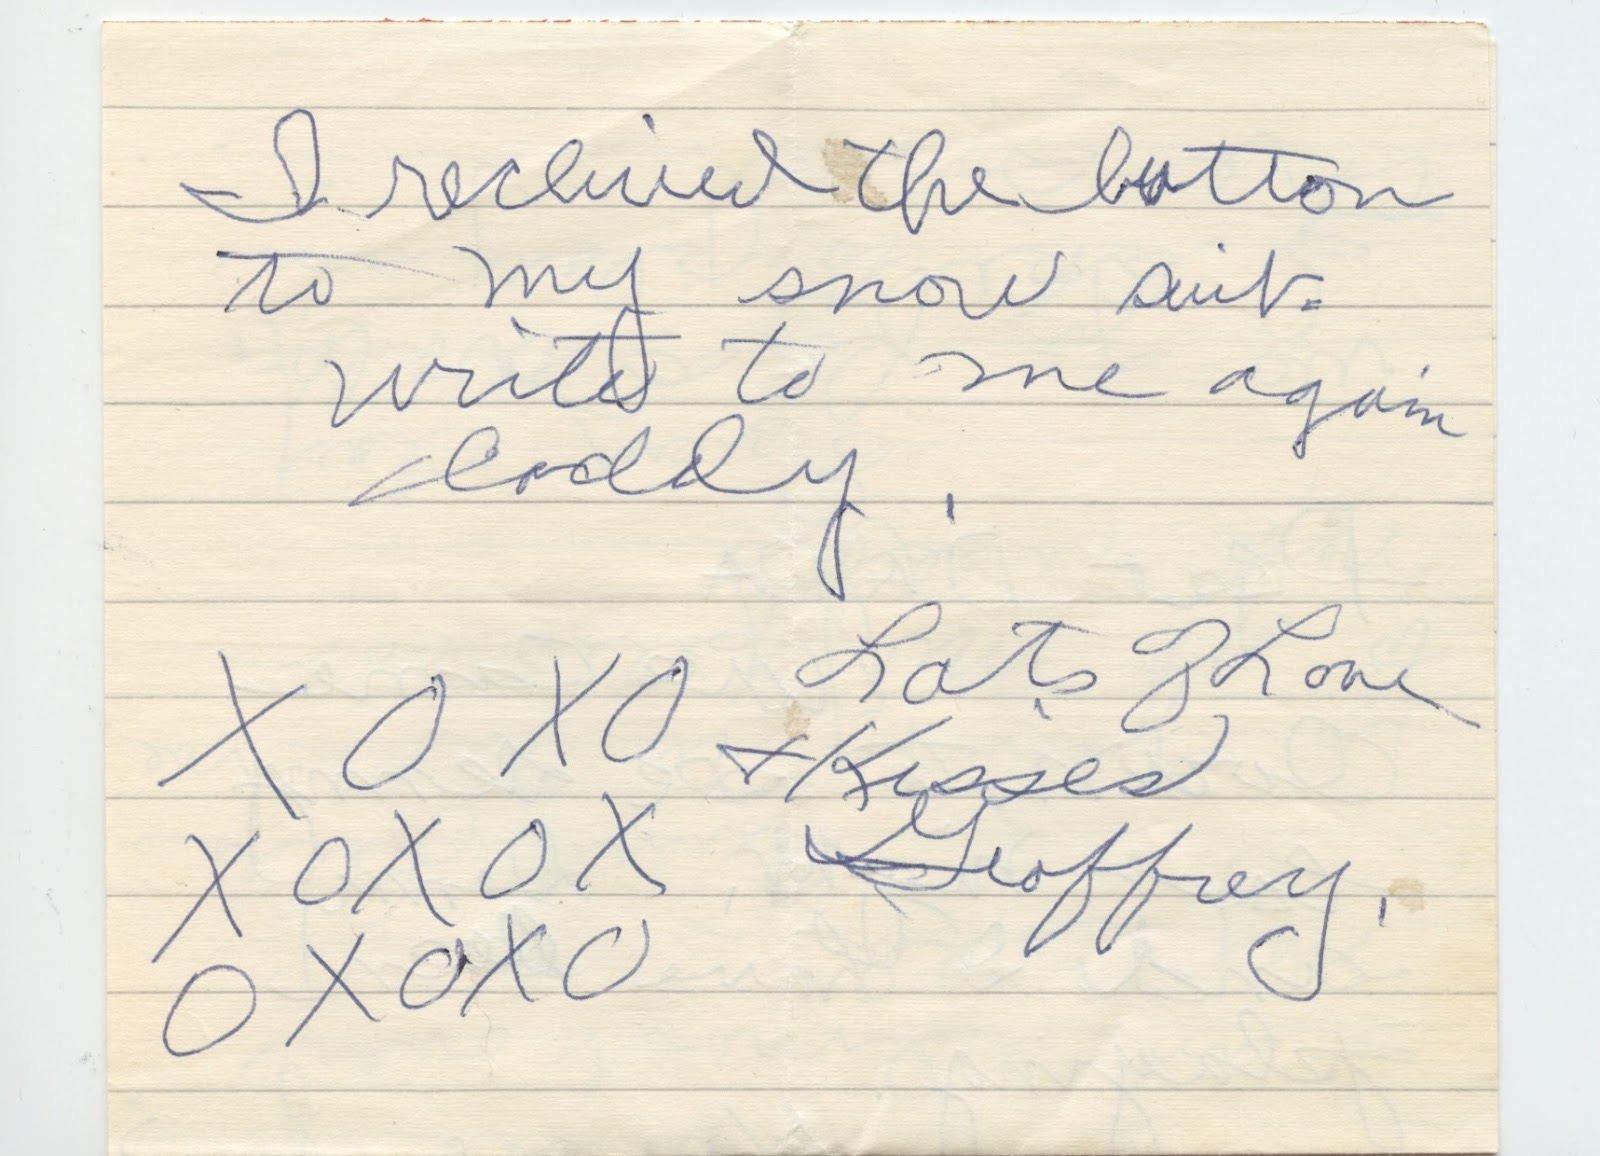 I recieved the button
to my snow suit.
write to me again
daddy.
Lots Of Love
X O X O
+ Kisses
X O X O X
Geoffrey.
O X O X O